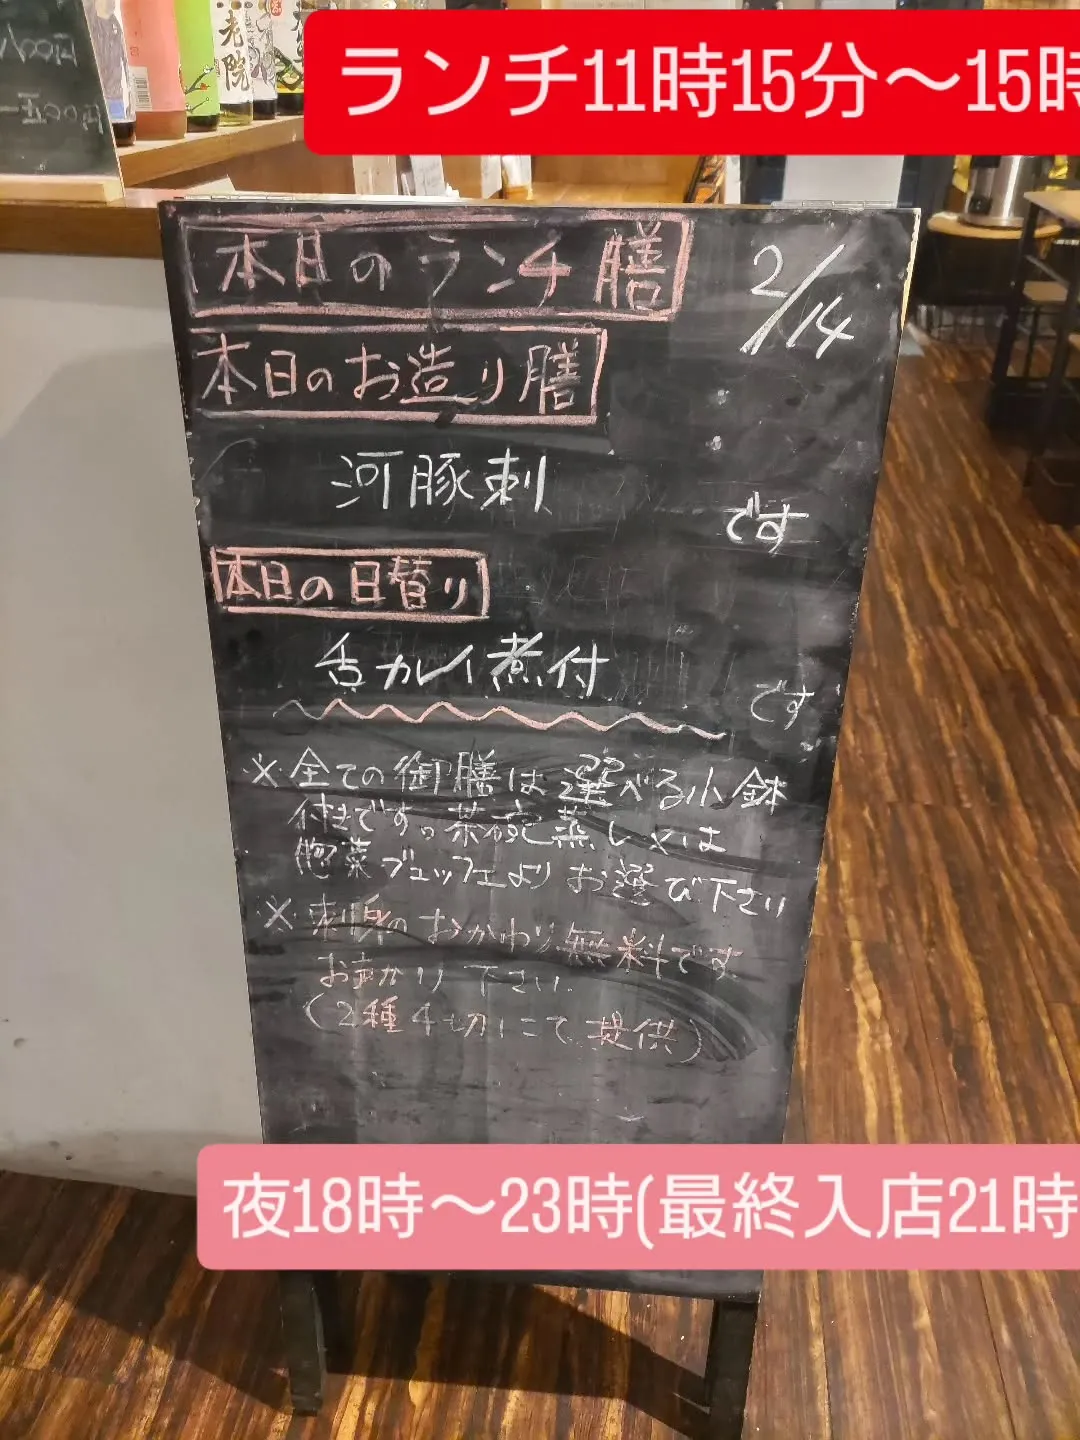 ランチ11時15分～15時
老院
本日のランチ膳
2/14
本日のお造り膳
河豚刺
です
本日の日替り
舌カレイ煮付
です
※全ての御膳は選べる小鉢
付きです。茶碗蒸し又は
惣菜ブュッフェよりお選び下さい
※刺身のおかわり無料です
お声かけ下さい
(2種4切にて提供)
夜18時～23時(最終入店21時